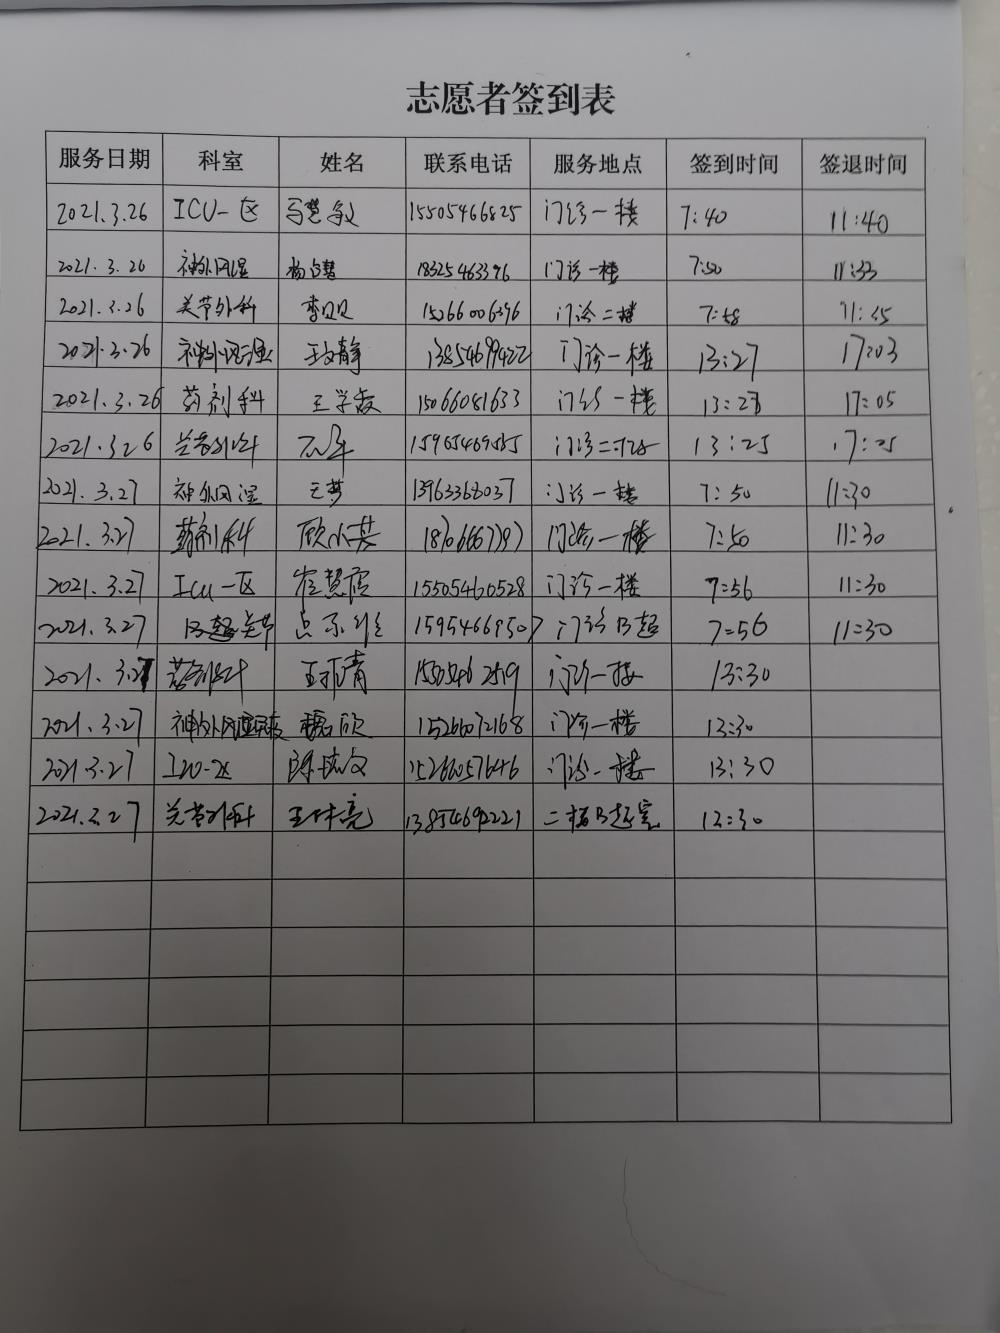 志愿者签到表
服务日期 科室 姓名 联系电话 服务地点 签到时间 签退时间
2021.3.26 ICU一区 马慧敏 15505466825 门诊一楼 7:40 11:40
2021.3.26 神外风湿 18325463396 门诊一楼 7:50 11:33
2021.3.26 关节外科 李贝贝 15266006396 门诊二楼 7:58 11:35
2021.3.26 神外风湿 王文静 13854699422 门诊一楼 13:27 17:03
2021.3.26 药剂科 王学霞 15066081633 门诊一楼 13:23 17:05
2021.3.26 关节外科 门诊二楼 13:25 17:25
2021.3.27 神外风湿 王梦 13963368037 门诊一楼 7:50 11:30
2021.3.27 药剂科 顾小英 门诊一楼 7:50 11:30
2021.3.27 ICU一区 崔慧霞 15505460528 门诊一楼 7:56 11:30
2021.3.27 B超关节 15954669507 门诊B超 7:56 11:30
2021.3.27 药剂科 门诊一楼 13:30
2021.3.27 神外风湿 15266072168 门诊一楼 13:30
2021.3.27 15266057646 门诊一楼 13:30
2021.3.27 关节外科 王林亮 13854692221 二楼B超室 13:30